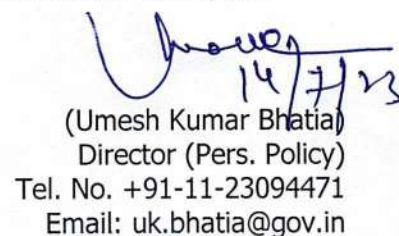 14/7/23
(Umesh Kumar Bhatia)
Director (Pers. Policy)
Tel. No. +91-11-23094471
Email: uk.bhatia@gov.in